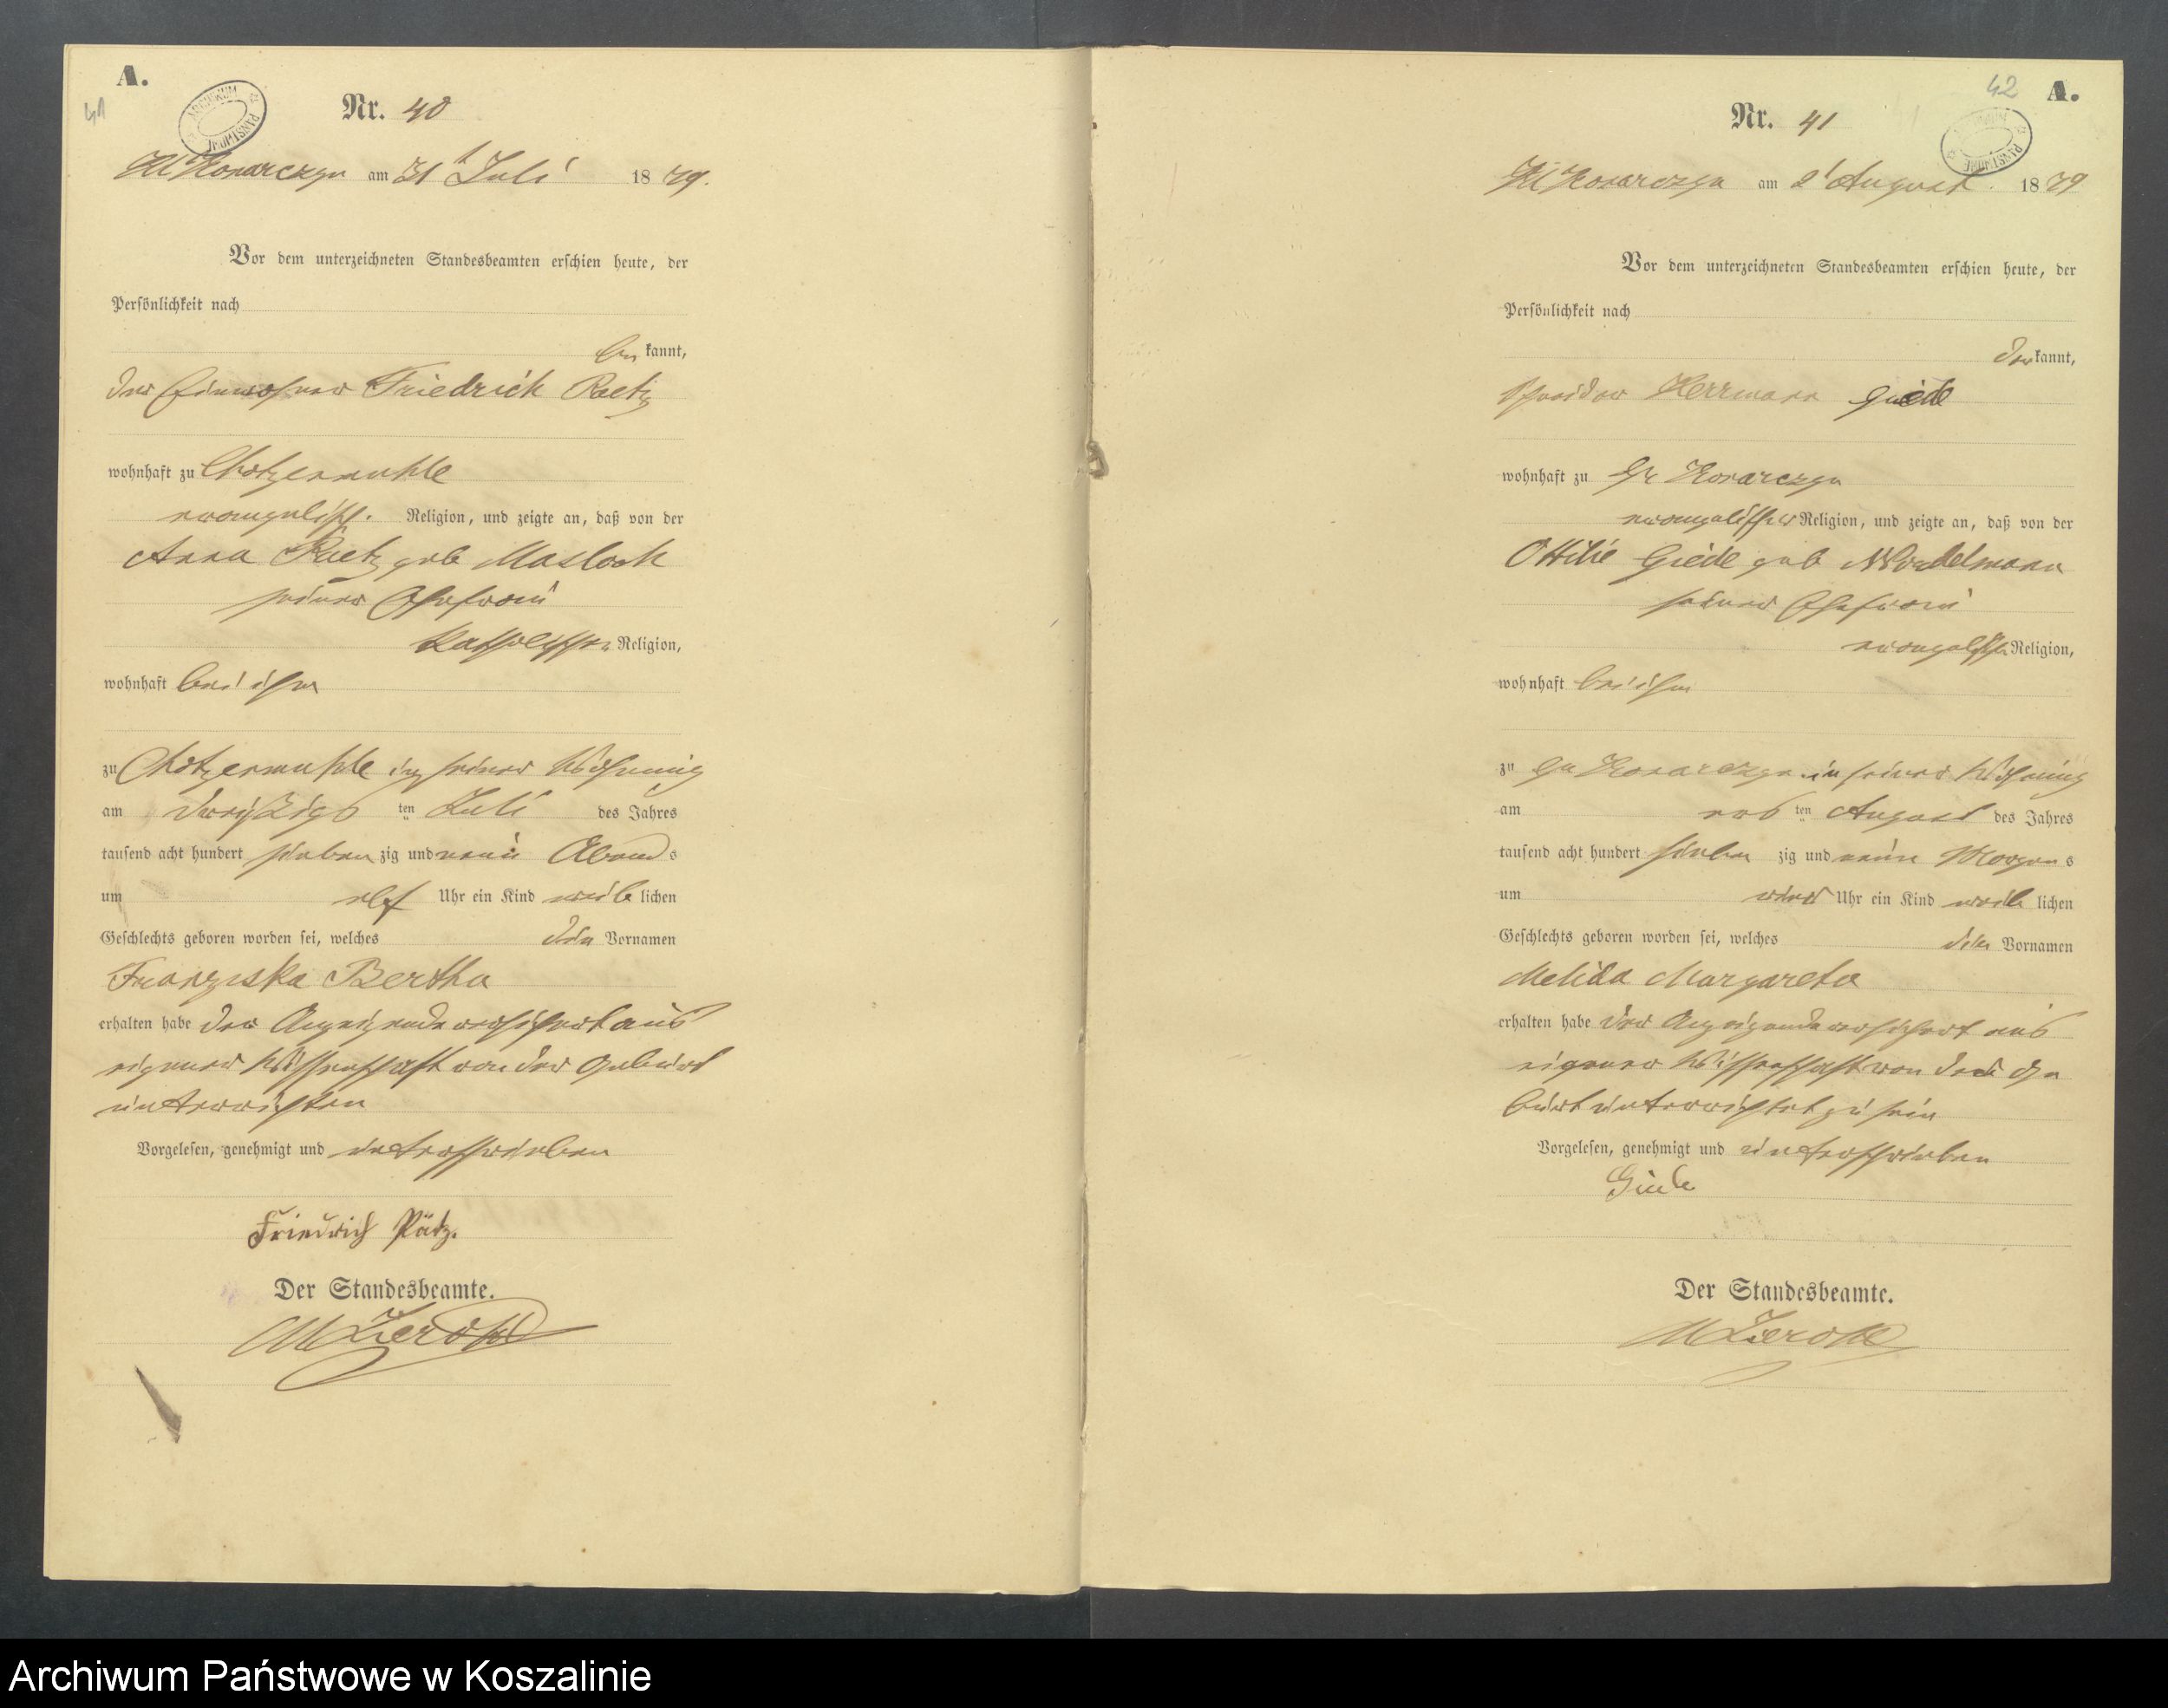 A.
41
ARCHIWUM PAŃSTWOWE
Nr. 40
Kl Konarczyn am 31t Juli 1879.
Vor dem unterzeichneten Standesbeamten erschien heute, der
Persönlichkeit nach
be kannt,
der Einwohner Friedrich Paetz
wohnhaft zu Chotzenmuhle
evangelisch. Religion, und zeigte an, daß von der
Anna Paetz geb Masloch
seiner Ehefrau
katholischer Religion,
wohnhaft bei ihm
zu Chotzenmuhle in seiner Wohnung
am dreißigs ten Juli des Jahres
tausend acht hundert sieben zig und neun Abend s
um elf Uhr ein Kind weib lichen
Geschlechts geboren worden sei, welches den Vornamen
Franziska Bertha
erhalten habe der Anzeigende versichert aus
eigener Wissenschaft von der Geburt
unterrichten
Vorgelesen, genehmigt und unterschrieben
Friedrich Pätz.
Der Standesbeamte.
42
A.
ARCHIWUM PAŃSTWOWE
Nr. 41
Kl Konarczyn am 2t August 1879
Vor dem unterzeichneten Standesbeamten erschien heute, der
Persönlichkeit nach
der kannt,
Schneider Herrmann Giede
wohnhaft zu Gr Konarczyn
evangelischer Religion, und zeigte an, daß von der
Ottilie Giede geb
seiner Ehefrau
evangelischer Religion,
wohnhaft bei ihm
zu Gr Konarczyn in seiner Wohnung
am ers ten August des Jahres
tausend acht hundert sieben zig und neun Morgen s
um vier Uhr ein Kind weib lichen
Geschlechts geboren worden sei, welches den Vornamen
Melida Margareta
erhalten habe der Anzeigende versichert aus
eigener Wissenschaft von der Ge
burt unterrichtet zu sein
Vorgelesen, genehmigt und unterschrieben
Giede
Der Standesbeamte.
Archiwum Państwowe w Koszalinie